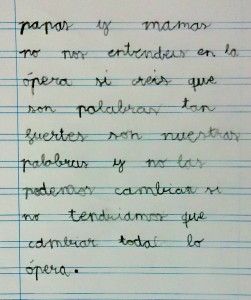 papas y mamas
no nos entendeis en la
ópera si creis que
son palabras tan
fuertes son nuestras
palabras y no las
podemos cambian si
no tendriamos que
cambiar toda lo
ópera.